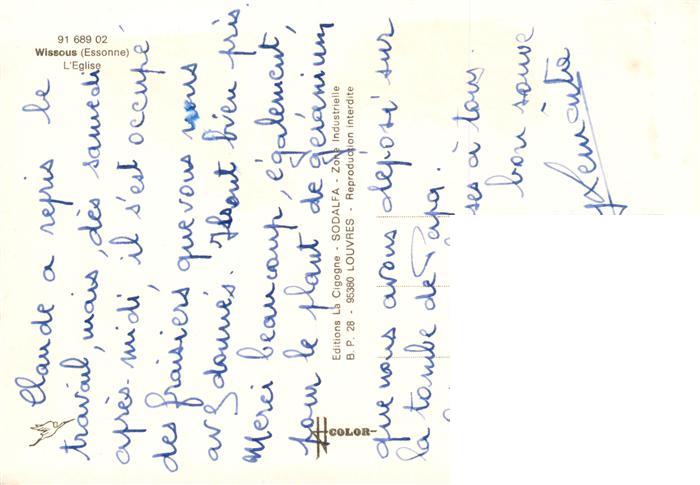 91 689 02
Wissous (Essonne)
L'Eglise
Claude a repris le
travail, mais, dès samedi
après-midi, il s'est occupé
des fraisiers que vous nous
avez donnés. Ils ont bien pris.
Merci beaucoup, également,
pour le plant de géranium
Editions La Cigogne - SODALFA - Zone Industrielle
B. P. 28 - 95380 LOUVRES - Reproduction interdite
COLOR
que nous avons déposé sur
la tombe de Papa.
ses à tous.
bon souve